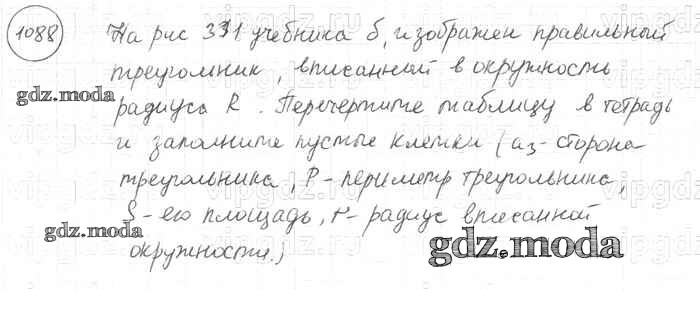 1088 На рис 331 учебника б, изображен правильный
треугольник, вписанный в окружность
радиуса R. Перечертите таблицу в тетрадь
и заполните пустые клетки (a₃-сторона
треугольника, P-периметр треугольника,
S-его площадь, r-радиус вписанной
окружности.)
gdz.moda
gdz.moda
gdz.moda